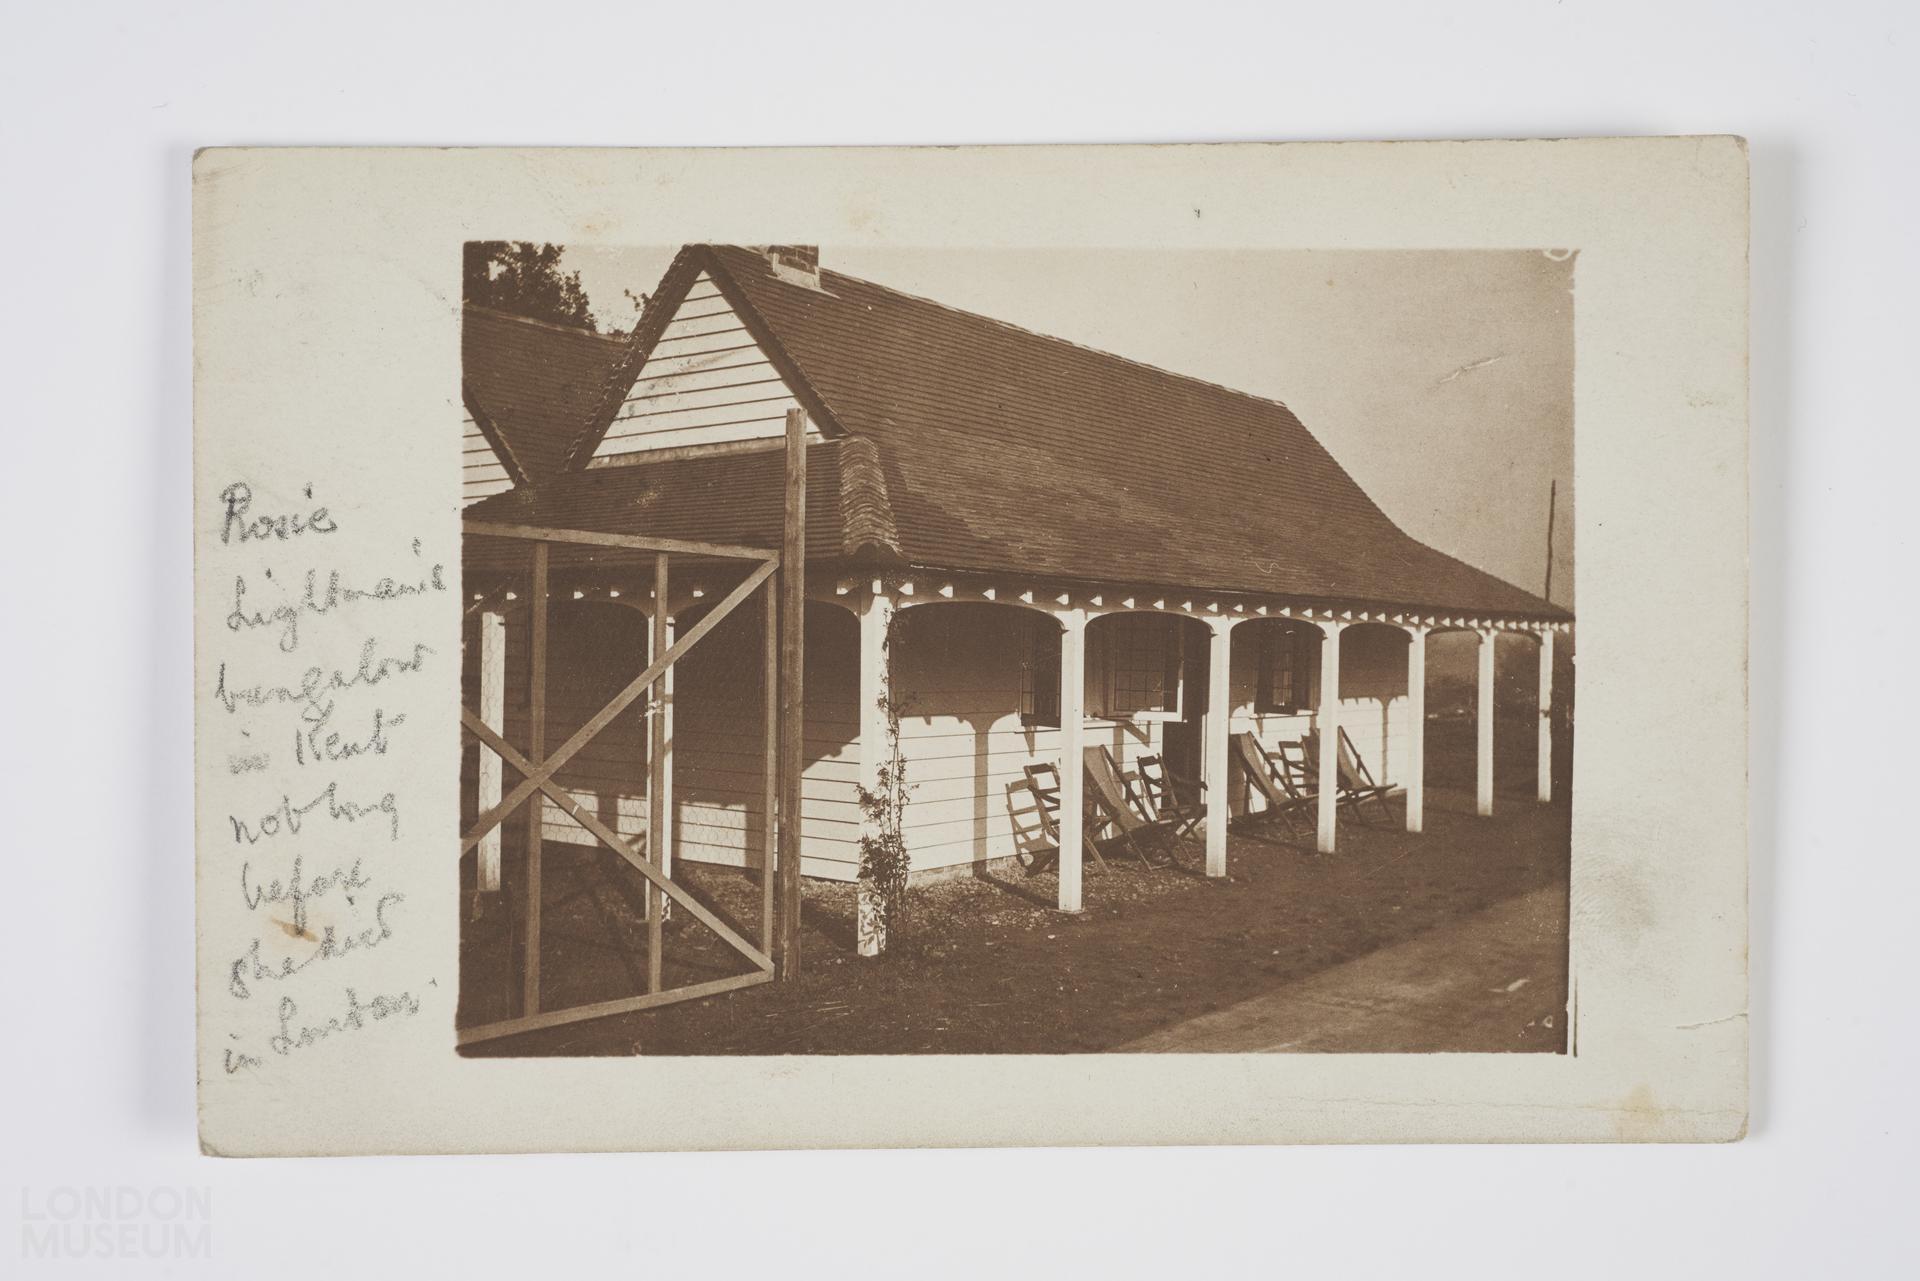 Rosie
Lightman's
bungalow
in Kent
not long
before
she died
in London.
LONDON
MUSEUM